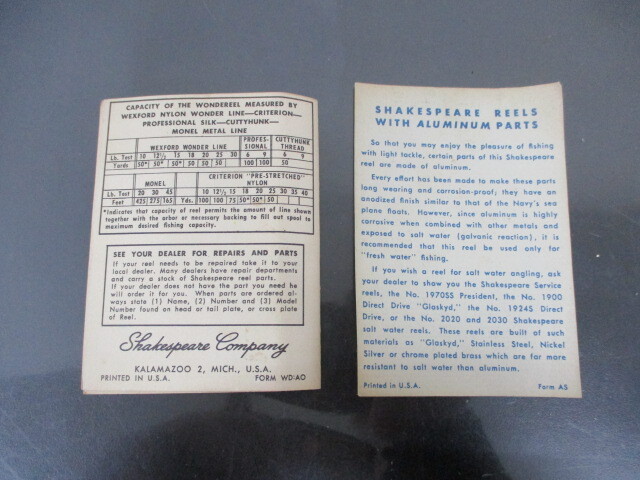 CAPACITY OF THE WONDEREEL MEASURED BY
WEXFORD NYLON WONDER LINE—CRITERION—
PROFESSIONAL SILK—CUTTYHUNK—
MONEL METAL LINE
WEXFORD WONDER LINE PROFES- CUTTYHUNK
SIONAL THREAD
Lb. Test 10 12½ 15 18 20 25 30 6 9 6 9
Yards 50* 50* 50 50 50 50 100 100 50
MONEL CRITERION "PRE-STRETCHED"
NYLON
Lb. Test 20 30 45 10 12½ 15 18 20 25 30 35 40
Feet 425 275 165 Yds. 100 100 75 50* 50* 50
*Indicates that capacity of reel permits the amount of line shown
together with the arbor or necessary backing to fill out spool to
maximum desired fishing capacity.
SEE YOUR DEALER FOR REPAIRS AND PARTS
If your reel needs to be repaired take it to your
local dealer. Many dealers have repair departments
and carry a stock of Shakespeare reel parts.
If your dealer does not have the part you need he
will order it for you. When parts are ordered al-
ways state (1) Name, (2) Number and (3) Model
Number found on head or tail plate, or cross plate
of Reel.
Shakespeare Company
KALAMAZOO 2, MICH., U.S.A.
PRINTED IN U.S.A. FORM WD:AO
SHAKESPEARE REELS
WITH ALUMINUM PARTS
So that you may enjoy the pleasure of fishing
with light tackle, certain parts of this Shakespeare
reel are made of aluminum.
Every effort has been made to make these parts
long wearing and corrosion-proof; they have an
anodized finish similar to that of the Navy's sea
plane floats. However, since aluminum is highly
corrosive when combined with other metals and
exposed to salt water (galvanic reaction), it is
recommended that this reel be used only for
"fresh water" fishing.
If you wish a reel for salt water angling, ask
your dealer to show you the Shakespeare Service
reels, the No. 1970SS President, the No. 1900
Direct Drive "Glaskyd," the No. 1924S Direct
Drive, or the No. 2020 and 2030 Shakespeare
salt water reels. These reels are built of such
materials as "Glaskyd," Stainless Steel, Nickel
Silver or chrome plated brass which are far more
resistant to salt water than aluminum.
Printed in U.S.A. Form AS